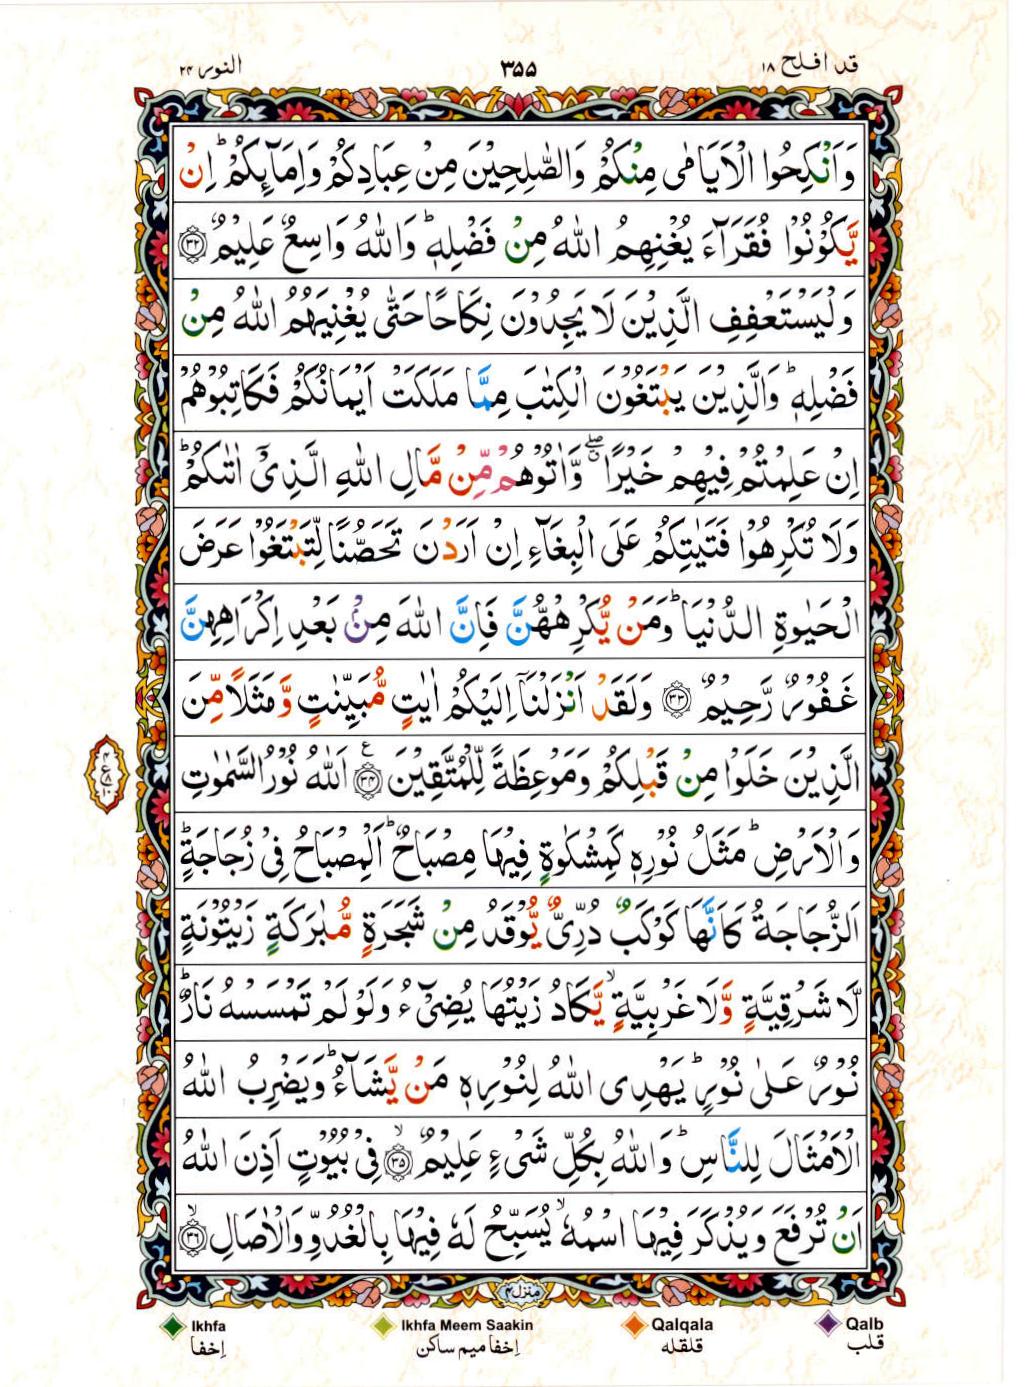 قد افلح ۱۸
۳۵۵
النور ۲۴
وَاَنْكِحُوا الْاَيَامٰى مِنْكُمْ وَالصّٰلِحِيْنَ مِنْ عِبَادِكُمْ وَاِمَآئِكُمْ ؕ اِنْ
يَّكُوْنُوْا فُقَرَآءَ يُغْنِهِمُ اللّٰهُ مِنْ فَضْلِهٖ ؕ وَاللّٰهُ وَاسِعٌ عَلِيْمٌ ﴿۳۲﴾
وَلْيَسْتَعْفِفِ الَّذِيْنَ لَا يَجِدُوْنَ نِكَاحًا حَتّٰى يُغْنِيَهُمُ اللّٰهُ مِنْ
فَضْلِهٖ ؕ وَالَّذِيْنَ يَبْتَغُوْنَ الْكِتٰبَ مِمَّا مَلَكَتْ اَيْمَانُكُمْ فَكَاتِبُوْهُمْ
اِنْ عَلِمْتُمْ فِيْهِمْ خَيْرًا ۖ وَّاٰتُوْهُمْ مِّنْ مَّالِ اللّٰهِ الَّذِيْۤ اٰتٰىكُمْ ؕ
وَلَا تُكْرِهُوْا فَتَيٰتِكُمْ عَلَى الْبِغَآءِ اِنْ اَرَدْنَ تَحَصُّنًا لِّتَبْتَغُوْا عَرَضَ
الْحَيٰوةِ الدُّنْيَا ؕ وَمَنْ يُّكْرِهْهُّنَّ فَاِنَّ اللّٰهَ مِنْۢ بَعْدِ اِكْرَاهِهِنَّ
غَفُوْرٌ رَّحِيْمٌ ﴿۳۳﴾ وَلَقَدْ اَنْزَلْنَاۤ اِلَيْكُمْ اٰيٰتٍ مُّبَيِّنٰتٍ وَّمَثَلًا مِّنَ
الَّذِيْنَ خَلَوْا مِنْ قَبْلِكُمْ وَمَوْعِظَةً لِّلْمُتَّقِيْنَ ﴿۳۴﴾ ع اَللّٰهُ نُوْرُ السَّمٰوٰتِ
وَالْاَرْضِ ؕ مَثَلُ نُوْرِهٖ كَمِشْكٰوةٍ فِيْهَا مِصْبَاحٌ ؕ اَلْمِصْبَاحُ فِيْ زُجَاجَةٍ ؕ
اَلزُّجَاجَةُ كَاَنَّهَا كَوْكَبٌ دُرِّيٌّ يُّوْقَدُ مِنْ شَجَرَةٍ مُّبٰرَكَةٍ زَيْتُوْنَةٍ
لَّا شَرْقِيَّةٍ وَّلَا غَرْبِيَّةٍ ۙ يَّكَادُ زَيْتُهَا يُضِيْٓءُ وَلَوْ لَمْ تَمْسَسْهُ نَارٌ ؕ
نُوْرٌ عَلٰى نُوْرٍ ؕ يَهْدِى اللّٰهُ لِنُوْرِهٖ مَنْ يَّشَآءُ ؕ وَيَضْرِبُ اللّٰهُ
الْاَمْثَالَ لِلنَّاسِ ؕ وَاللّٰهُ بِكُلِّ شَيْءٍ عَلِيْمٌ ۙ ﴿۳۵﴾ فِيْ بُيُوْتٍ اَذِنَ اللّٰهُ
اَنْ تُرْفَعَ وَيُذْكَرَ فِيْهَا اسْمُهٗ ۙ يُسَبِّحُ لَهٗ فِيْهَا بِالْغُدُوِّ وَالْاٰصَالِ ۙ ﴿۳۶﴾
منزل ۴
Ikhfa
إخفا
Ikhfa Meem Saakin
إخفا ميم ساكن
Qalqala
قلقله
Qalb
قلب